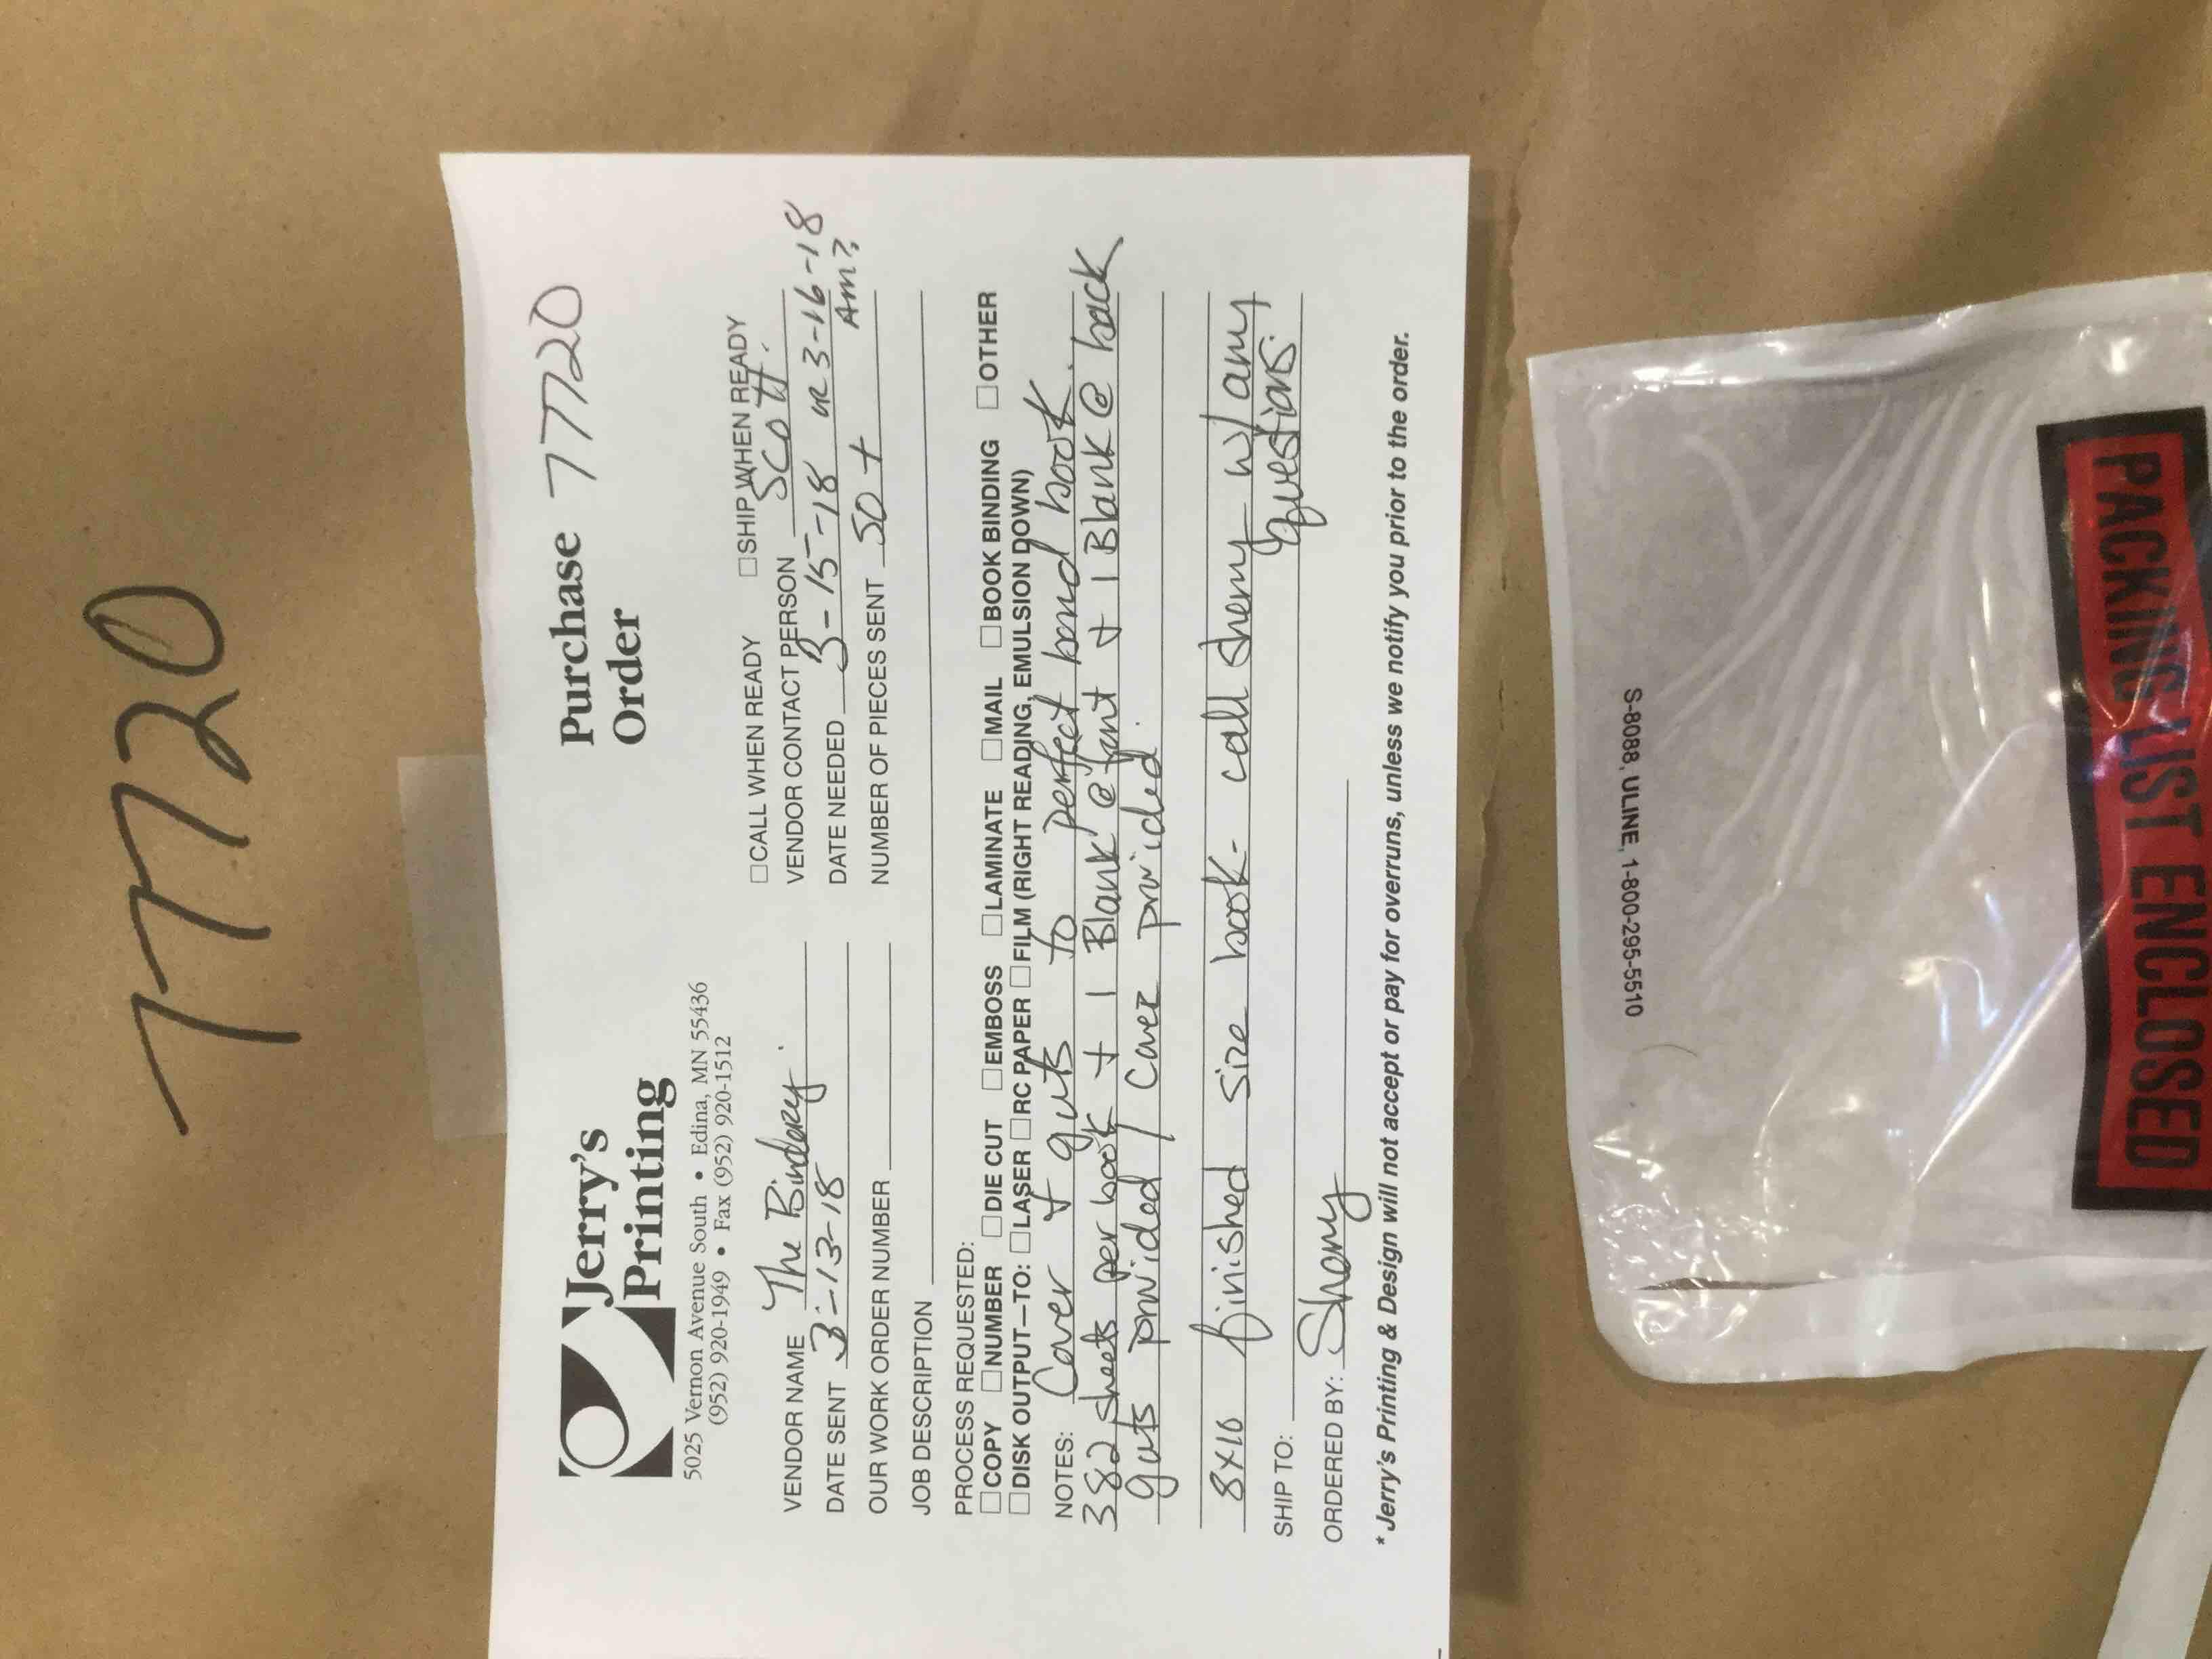 7720
Jerry's
Printing
Purchase
Order
77720
5025 Vernon Avenue South • Edina, MN 55436
(952) 920-1949 • Fax (952) 920-1512
☐CALL WHEN READY ☐SHIP WHEN READY
VENDOR NAME The Bindery.
VENDOR CONTACT PERSON SCOTT.
DATE SENT 3-13-18
DATE NEEDED 3-15-18 OR 3-16-18
Am??
OUR WORK ORDER NUMBER
NUMBER OF PIECES SENT 50 +
JOB DESCRIPTION
PROCESS REQUESTED:
☐COPY ☐NUMBER ☐DIE CUT ☐EMBOSS ☐LAMINATE ☐MAIL ☐BOOK BINDING ☐OTHER
☐DISK OUTPUT—TO: ☐LASER ☐RC PAPER ☐FILM (RIGHT READING, EMULSION DOWN)
NOTES: Cover + guts to perfect bond book.
382 sheets per book + 1 Blank @ front + 1 Blank @ back
guts provided / Cover provided.
8x10 finished size book- call Sherry w/ any
questions.
SHIP TO:
ORDERED BY: Sherry
* Jerry's Printing & Design will not accept or pay for overruns, unless we notify you prior to the order.
S-8088, ULINE, 1-800-295-5510
PACKING LIST ENCLOSED